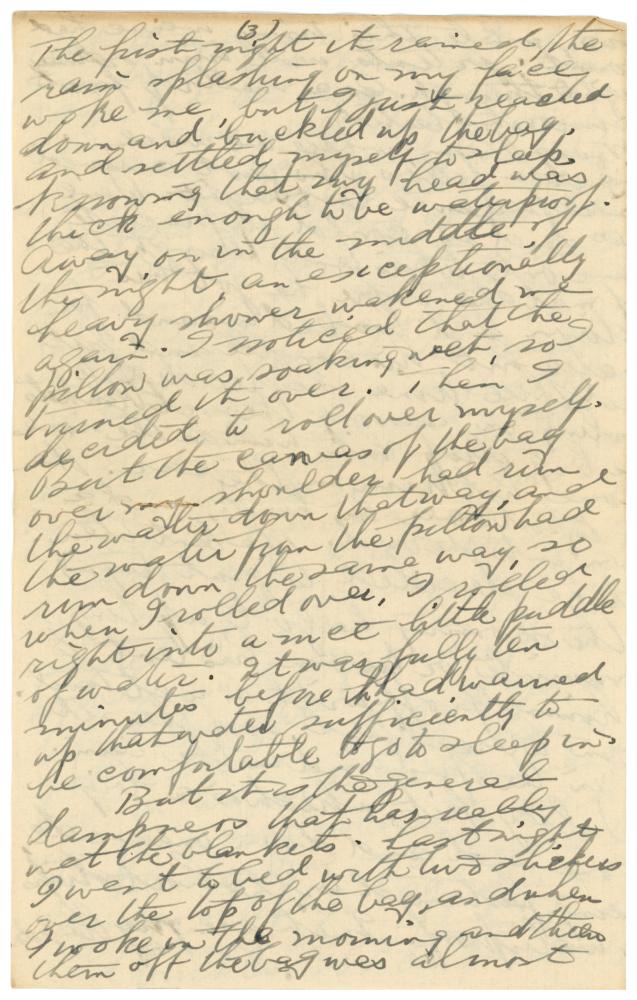 (3)
The first night it rained, the
rain splashing on my face
woke me, but I just reached
down and buckled up the bag,
and settled myself to sleep
knowing that my head was
thick enough to be waterproof.
Away on in the middle of
the night, an exceptionally
heavy shower wakened me
again. I noticed that the
pillow was soaking wet, so I
turned it over. Then I
decided to roll over myself.
But the canvas of the bag
over my shoulder had run
the water down that way, and
the water from the pillow had
run down the same way, so
when I rolled over, I rolled
right into a nice little puddle
of water. It was fully ten
minutes before I had warmed
up that water sufficiently to
be comfortable to go to sleep in.
But it is the general
dampness that has really
wet the blankets. Last night
I went to bed with two slickers
over the top of the bag, and when
I woke in the morning and threw
them off the bag was almost